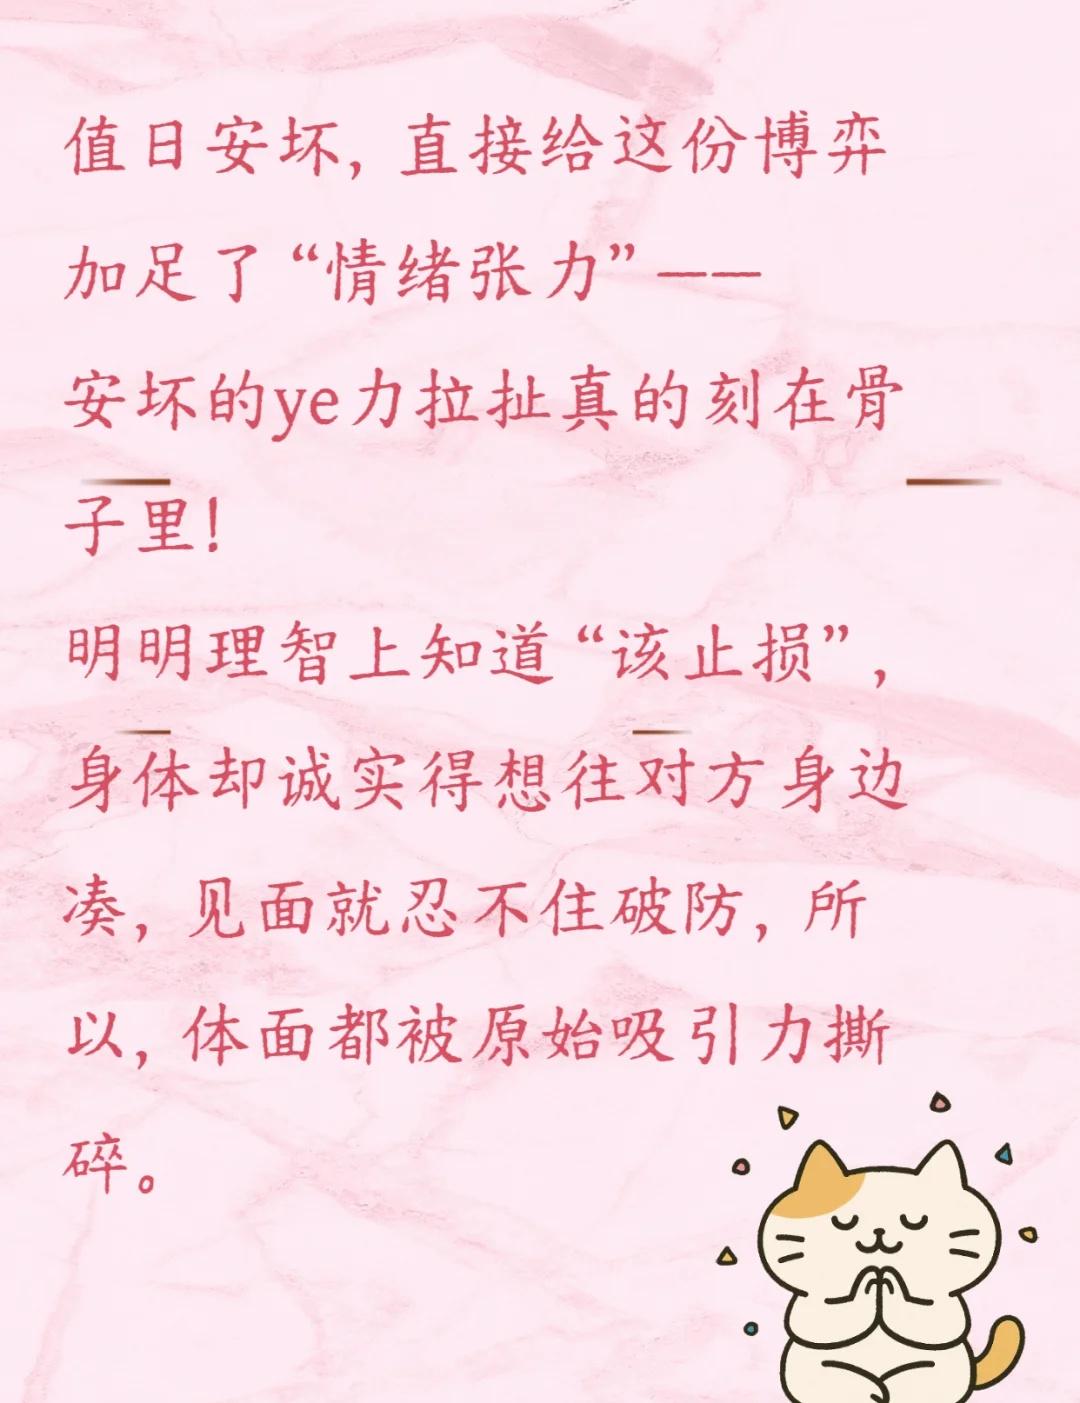 值日安坏，直接给这份博弈
加足了“情绪张力”——
安坏的ye力拉扯真的刻在骨
子里！
明明理智上知道“该止损”，
身体却诚实得想往对方身边
凑，见面就忍不住破防，所
以，体面都被原始吸引力撕
碎。